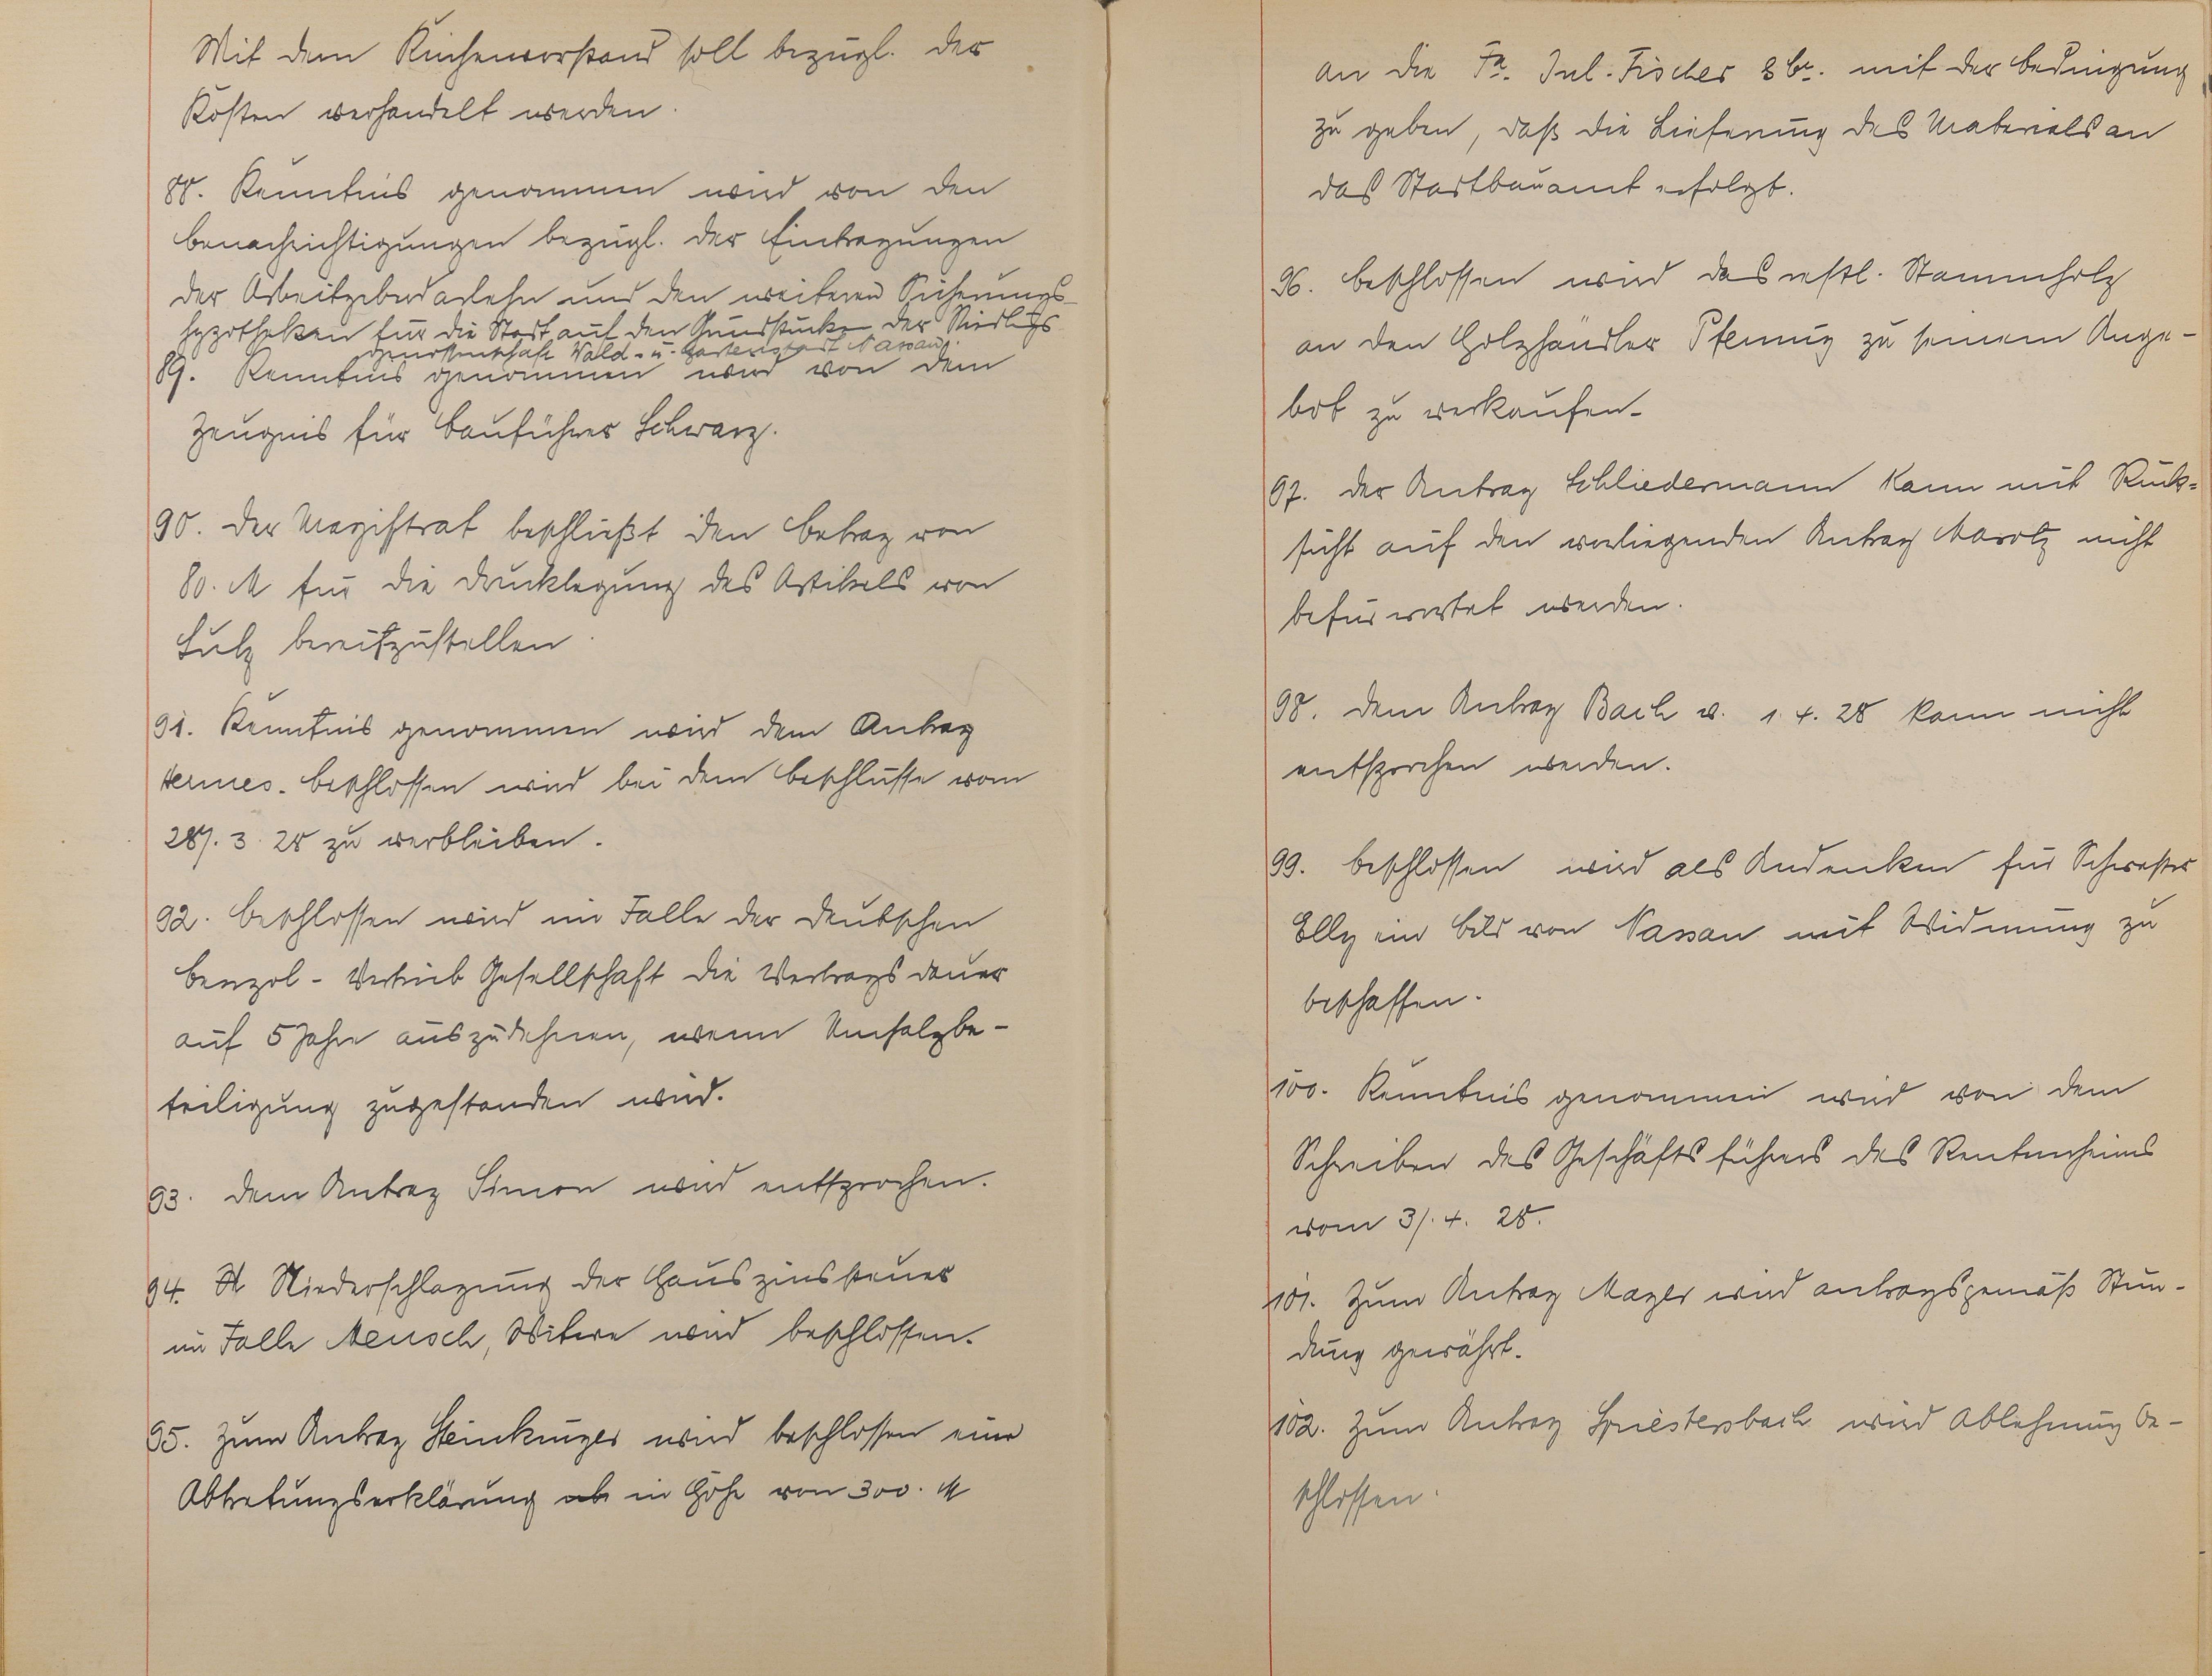 Mit dem Kirchenvorstand soll bezügl. der
Kosten verhandelt werden.
88. Kenntnis genommen wird von den
Benachrichtigungen bezügl. der Eintragungen
der Arbeitgeberdarlehn und den weiteren Sicherungs-
hypotheken für die Stadt auf den Grundstücken der Siedlgs
genossenschaft Wald- u. Gartenstadt Nassau.
89. Kenntnis genommen wird von dem
Zeugnis für Bauführer Schwarz.
90. Der Magistrat beschließt den Betrag von
80. M für die Drucklegung des Artikels von
Sulz bereitzustellen.
91. Kenntnis genommen wird dem Antrag
Hermes. Beschlossen wird bei dem Beschlusse vom
28/. 3. 28 zu verbleiben.
92. Beschlossen wird im Falle der Deutschen
Benzol-Vertrieb Gesellschaft die Vertragsdauer
auf 5 Jahre auszudehnen, wenn Umsatzbe-
teiligung zugestanden wird.
93. Dem Antrag Simon wird entsprochen.
94. Niederschlagung der Hauszinssteuer
im Falle Mensch, Witwe wird beschlossen.
95. Zum Antrag Steinkrüger wird beschlossen eine
Abtretungserklärung ab in Höhe von 300. M
an die Fa. Jul. Fischer Sbr. mit der Bedingung
zu geben, daß die Lieferung des Materials an
das Stadtbauamt erfolgt.
96. Beschlossen wird das restl. Stammholz
an den Holzhändler Pfennig zu seinem Ange-
bot zu verkaufen.
97. Der Antrag Schliedermann kann mit Rück-
sicht auf den vorliegenden Antrag Marotz nicht
befürwortet werden.
98. Dem Antrag Bach v. 1. 4. 28 kann nicht
entsprochen werden.
99. Beschlossen wird als Andenken für Schwester
Elly ein Bild von Nassau mit Widmung zu
beschaffen.
100. Kenntnis genommen wird von dem
Schreiben des Geschäftsführers des Rentnerheims
vom 3/. 4. 28.
101. Zum Antrag Mayer wird antragsgemäß Stun-
dung gewährt.
102. Zum Antrag Spriestersbach wird Ablehnung be-
schlossen.